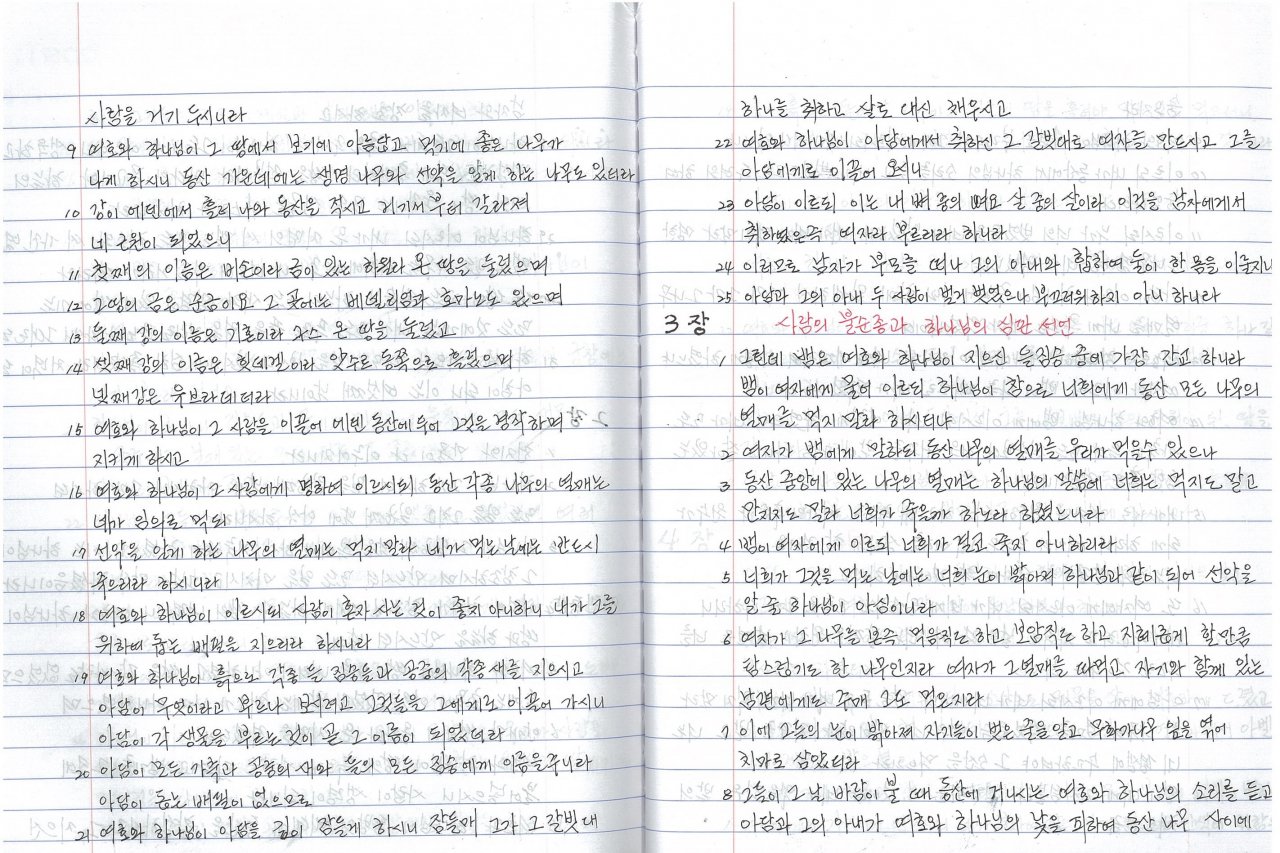 사람을 거기 두시니라
9 여호와 하나님이 그 땅에서 보기에 아름답고 먹기에 좋은 나무가
나게 하시니 동산 가운데에는 생명 나무와 선악을 알게 하는 나무도 있더라
10 강이 에덴에서 흘러 나와 동산을 적시고 거기서부터 갈라져
네 근원이 되었으니
11 첫째의 이름은 비손이라 금이 있는 하윌라 온 땅을 둘렀으며
12 그땅의 금은 순금이요 그 곳에는 베델리엄과 호마노도 있으며
13 둘째 강의 이름은 기혼이라 구스 온 땅을 둘렀고
14 셋째 강의 이름은 힛데겔이라 앗수르 동쪽으로 흘렀으며
넷째강은 유브라데더라
15 여호와 하나님이 그 사람을 이끌어 에덴 동산에 두어 그것을 경작하며
지키게 하시고
16 여호와 하나님이 그 사람에게 명하여 이르시되 동산 각종 나무의 열매는
네가 임의로 먹되
17 선악을 알게 하는 나무의 열매는 먹지 말라 네가 먹는 날에는 반드시
죽으리라 하시니라
18 여호와 하나님이 이르시되 사람이 혼자 사는 것이 좋지 아니하니 내가 그를
위하여 돕는 배필을 지으리라 하시니라
19 여호와 하나님이 흙으로 각종 들 짐승들과 공중의 각종 새를 지으시고
아담이 무엇이라고 부르나 보시려고 그것들을 그에게로 이끌어 가시니
아담이 각 생물을 부르는 것이 곧 그 이름이 되었더라
20 아담이 모든 가축과 공중의 새와 들의 모든 짐승에게 이름을주니라
아담이 돕는 배필이 없으므로
21 여호와 하나님이 아담을 깊이 잠들게 하시니 잠들매 그가 그 갈빗대
하나를 취하고 살로 대신 채우시고
22 여호와 하나님이 아담에게서 취하신 그 갈빗대로 여자를 만드시고 그를
아담에게로 이끌어 오시니
23 아담이 이르되 이는 내 뼈 중의 뼈요 살 중의 살이라 이것을 남자에게서
취하였은즉 여자라 부르리라 하니라
24 이러므로 남자가 부모를 떠나 그의 아내와 합하여 둘이 한 몸을 이룰지니
25 아담과 그의 아내 두 사람이 벌거 벗었으나 부끄러워하지 아니 하니라
3 장 사람의 불순종과 하나님의 심판 선언
1 그런데 뱀은 여호와 하나님이 지으신 들짐승 중에 가장 간교 하니라
뱀이 여자에게 물어 이르되 하나님이 참으로 너희에게 동산 모든 나무의
열매를 먹지 말라 하시더냐
2 여자가 뱀에게 말하되 동산 나무의 열매를 우리가 먹을수 있으나
3 동산 중앙에 있는 나무의 열매는 하나님의 말씀에 너희는 먹지도 말고
만지지도 말라 너희가 죽을까 하노라 하셨느니라
4 뱀이 여자에게 이르되 너희가 결코 죽지 아니하리라
5 너희가 그것을 먹는 날에는 너희 눈이 밝아져 하나님과 같이 되어 선악을
알 줄 하나님이 아심이니라
6 여자가 그 나무를 본즉 먹음직도 하고 보암직도 하고 지혜롭게 할만큼
탐스럽기도 한 나무인지라 여자가 그열매를 따먹고 자기와 함께 있는
남편에게도 주매 그도 먹은지라
7 이에 그들의 눈이 밝아져 자기들이 벗은 줄을 알고 무화과나무 잎을 엮어
치마로 삼았더라
8 그들이 그 날 바람이 불 때 동산에 거니시는 여호와 하나님의 소리를 듣고
아담과 그의 아내가 여호와 하나님의 낯을 피하여 동산 나무 사이에